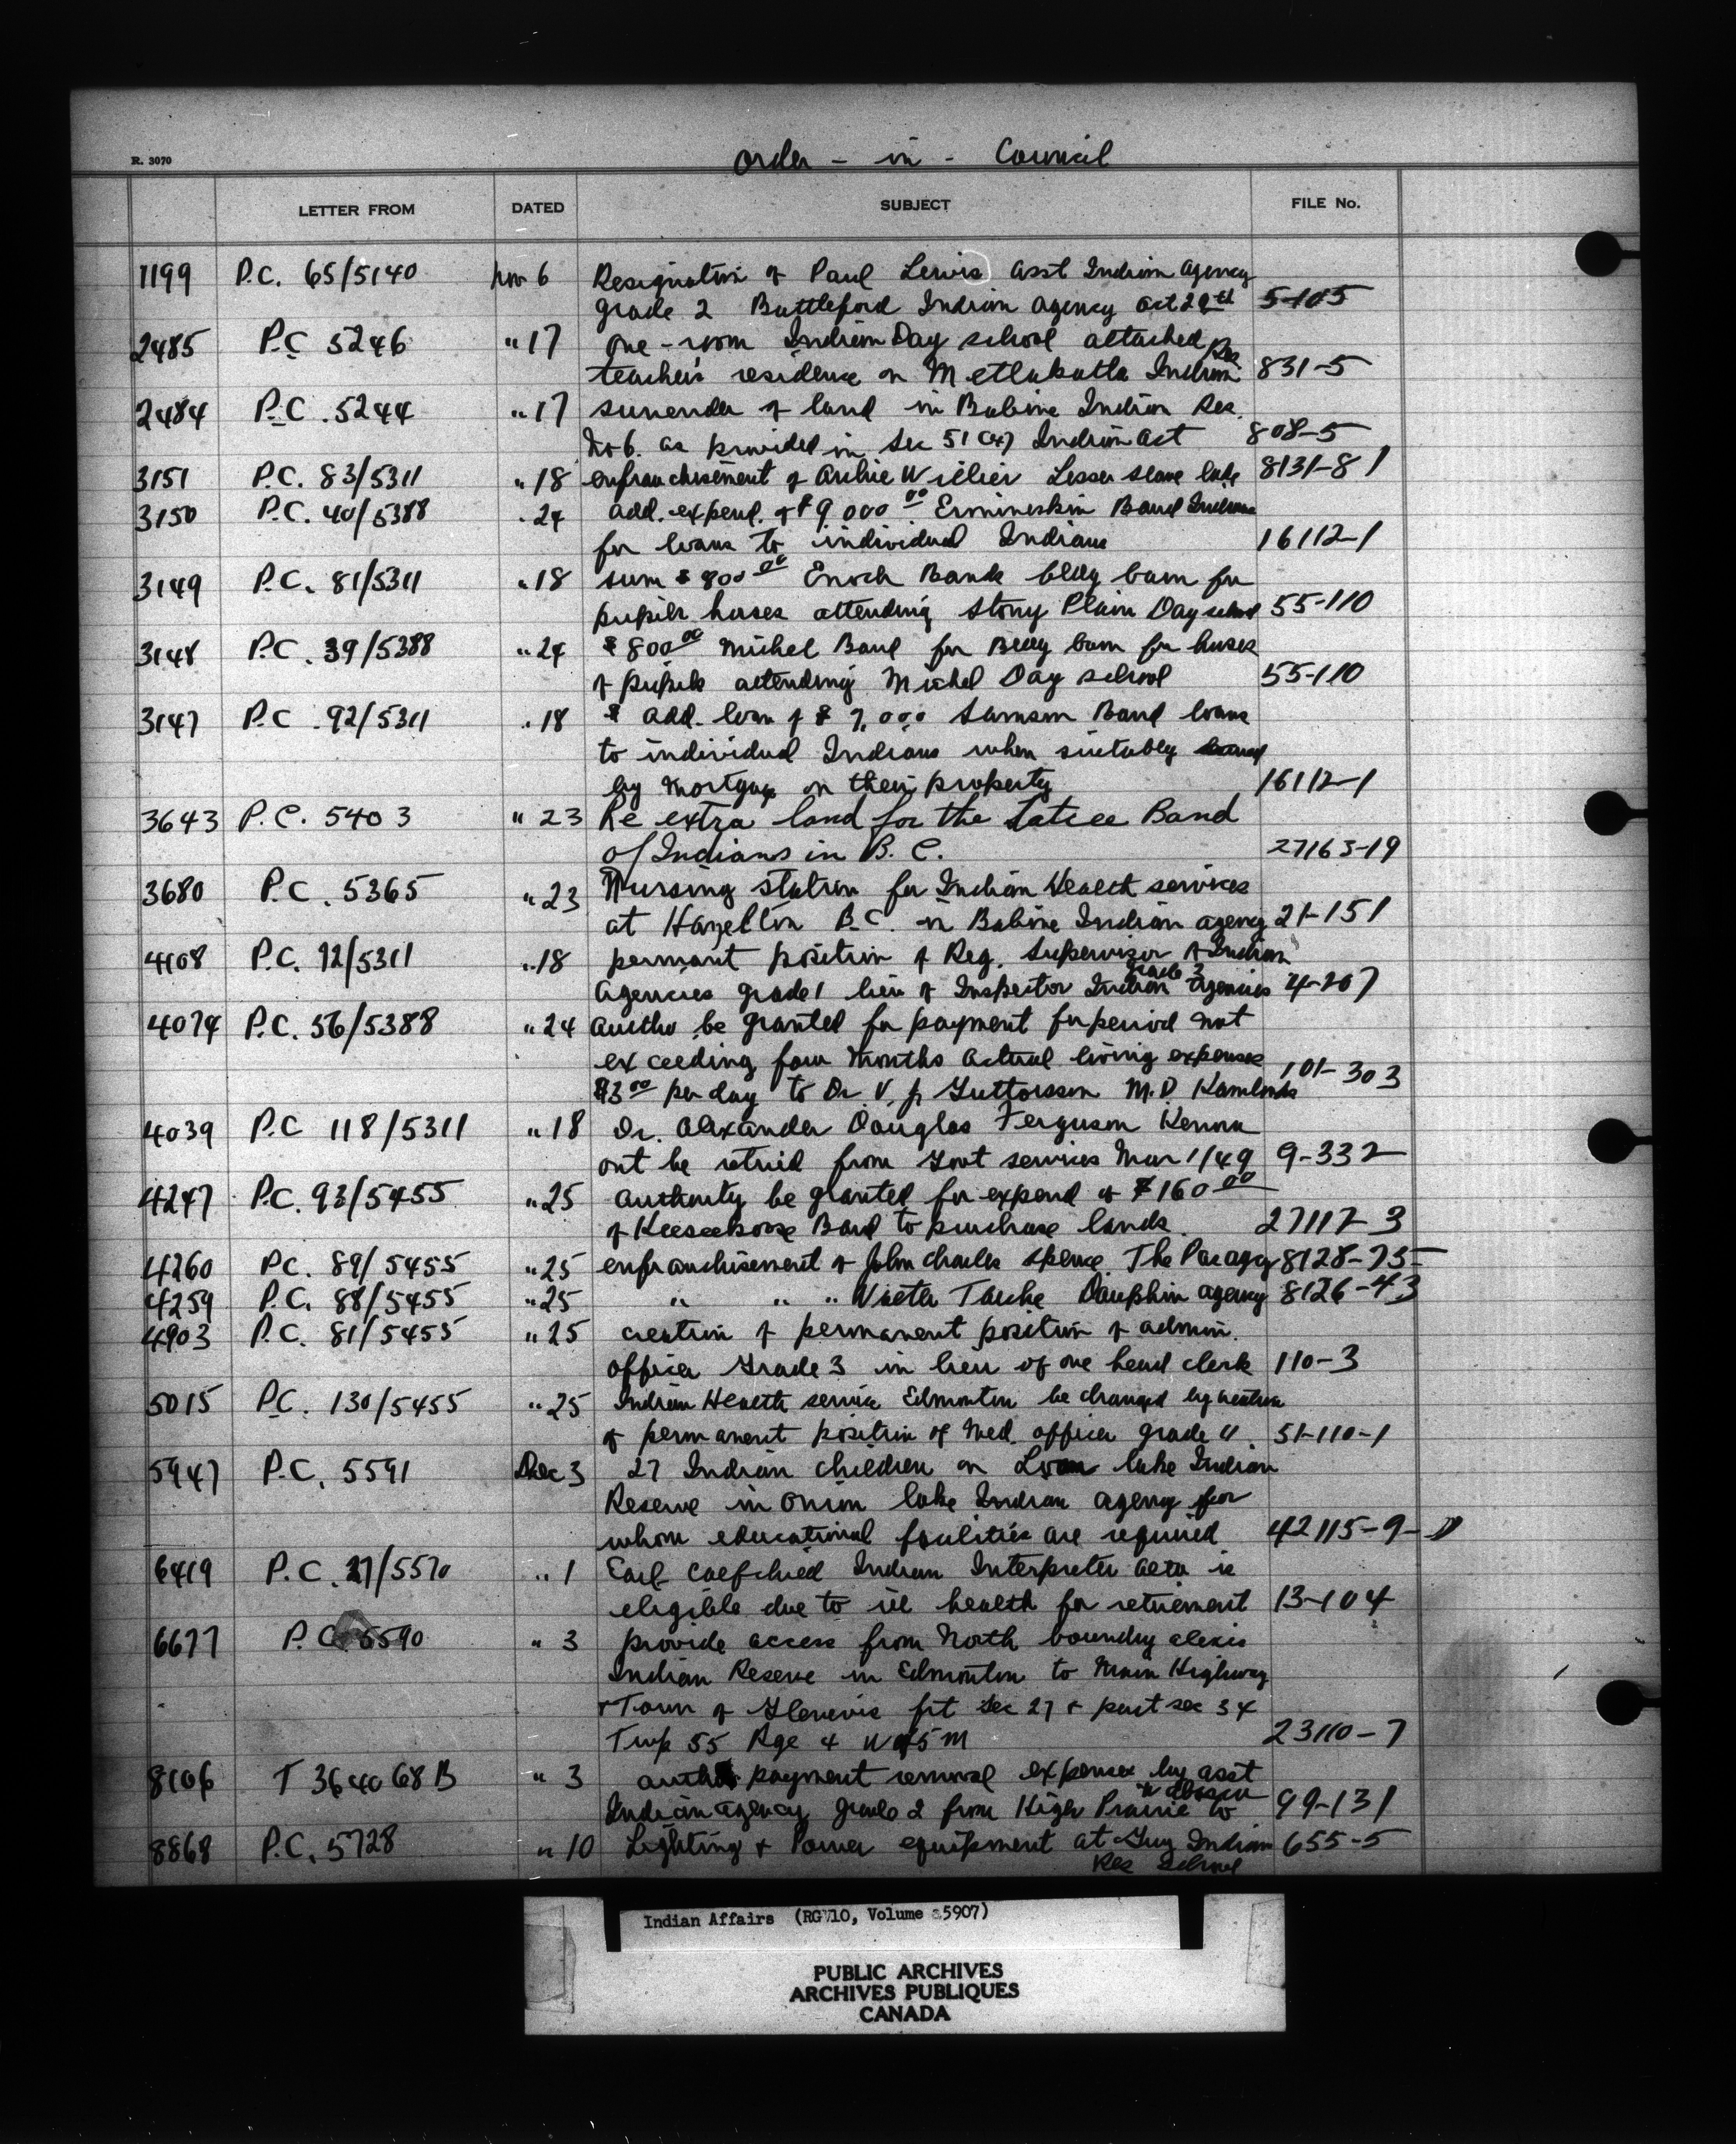 Order - in - Council
R. 3070
LETTER FROM DATED SUBJECT FILE No.
1199 P.C. 65/5140 Nov 6 Resignation of Paul Lewis asst Indian Agency
grade 2 Battleford Indian Agency Oct 29th 5-105
2485 P.C 5246 " 17 one-room Indian Day school attached
teacher's residence on Metlakatla Indian Res 831-5
2484 P.C. 5244 " 17 surrender of land in Babine Indian Res.
No 6. as provided in Sec 51 Indian Act 808-5
3151 P.C. 83/5311 " 18 enfranchisement of Archie Willier Lesser Slave lake 8131-81
3150 P.C. 40/5388 " 24 add. expend. of $9000 00 Ermineskin Band Indians
for loans to individual Indians 16112-1
3149 P.C. 81/5311 " 18 sum $800 00 Enoch Band bldg barn for
pupils horses attending Stony Plain Day school 55-110
3148 P.C. 39/5388 " 24 $800 00 Michel Band for Bldg barn for horses
of pupils attending Michel Day school 55-110
3147 P.C. 92/5311 " 18 add. loan of $ 7,000 Samson Band loans
to individual Indians when suitably
by mortgage on their property 16112-1
3643 P.C. 5403 " 23 Re extra land for the Band
of Indians in B.C. 27163-19
3680 P.C. 5365 " 23 Nursing station for Indian Health services
at Hazelton B.C. in Babine Indian agency 21-151
4108 P.C. 92/5311 " 18 permant position of Reg. Supervisor of Indian
Agencies grade 1 lieu of Inspector Indian Agencies grade 3 4-207
4074 P.C. 56/5388 " 24 autho be granted for payment for period not
exceeding four months actual living expenses
$3 00 per day to Dr. V. P. Guttormsson M.D. Kamloops 101-303
4039 P.C 118/5311 " 18 Dr. Alexander Douglas Ferguson Kenora
ont be retired from Govt services Mar 1/49 9-332
4247 P.C. 93/5455 " 25 authority be granted for expend of $160 00
of Keeseekoose Band to purchase lands. 27117-3
4260 P.C. 89/5455 " 25 enfranchisement of John Charles Spence The Pas agy 8128-75
4259 P.C. 88/5455 " 25 " " " Tanche Dauphin agency 8126-43
4903 P.C. 81/5455 " 25 creation of permanent position of admin.
officer Grade 3 in lieu of one head clerk 110-3
5015 P.C. 130/5455 " 25 Indian Health service Edmonton be changed by creation
of permanent position of Med. officer grade 4. 51-110-1
5947 P.C. 5591 Dec 3 27 Indian children on Loon lake Indian
Reserve in Onion lake Indian agency for
whom educational facilities are required 42115-9-D
6419 P.C. 27/5570 " 1 Earl Calfchild Indian Interpreter Alta is
eligible due to ill health for retirement 13-104
6677 P.C. 5590 " 3 provide access from North boundry Alexis
Indian Reserve in Edmonton to Main Highway
+ Town of Glenevis prt Sec 27 + part sec 34
Twp 55 Rge 4 W of 5 M 23110-7
8106 T 364068 B " 3 autho payment removal expenses by asst
Indian agency grade 2 from High Prairie to 99-131
8868 P.C. 5728 " 10 Lighting + Power equipment at Guy Indian 655-5
Res School
Indian Affairs (RG 10, Volume 5907)
PUBLIC ARCHIVES
ARCHIVES PUBLIQUES
CANADA